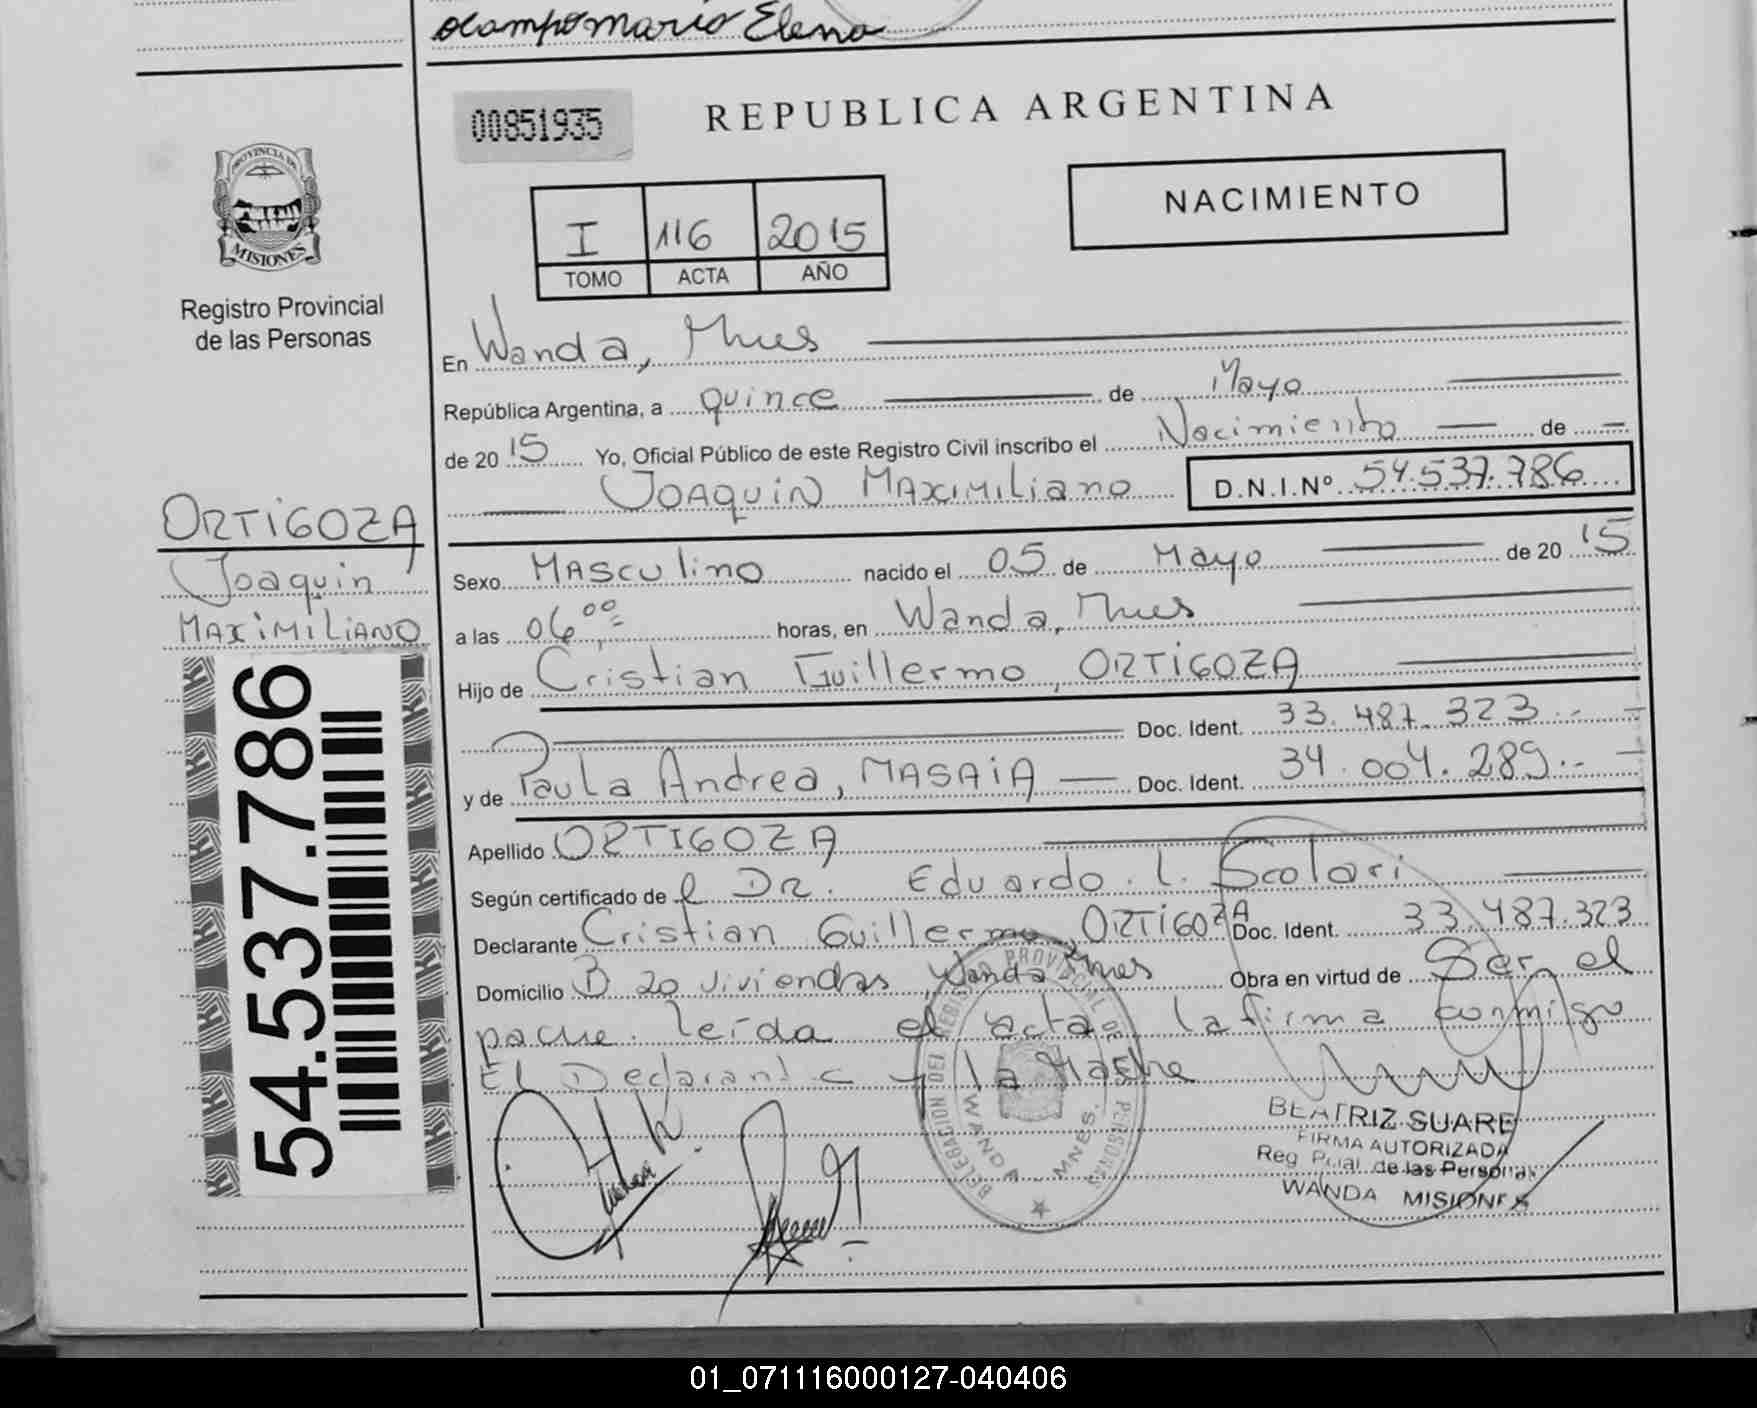 ocampo Mario Elena
00851935
REPUBLICA ARGENTINA
NACIMIENTO
I 116 2015
TOMO ACTA AÑO
PROVINCIA DE
MISIONES
Registro Provincial
de las Personas
En Wanda, Mnes
República Argentina, a quince de Mayo
de 20 15 Yo, Oficial Público de este Registro Civil inscribo el Nacimiento de
JOAQUIN MAXIMILIANO D.N.I.Nº 54.537.786
ORTIGOZA
Joaquin
MAXIMILIANO
54.537.786
Sexo MASCULINO nacido el 05 de Mayo de 20 15
a las 06,00 horas, en Wanda, Mnes
Hijo de Cristian Guillermo, ORTIGOZA
Doc. Ident. 33.487.323.-
y de Paula Andrea, MASAIA Doc. Ident. 34.004.289.-
Apellido ORTIGOZA
Según certificado de el Dr. Eduardo L. Scolari
Declarante Cristian Guillermo, ORTIGOZA Doc. Ident. 33.487.323
Domicilio B 20 viviendas, Wanda Mnes Obra en virtud de Ser el
padre. Leída el acta la firma conmigo
El Declarante y la Madre
DELEGACION DEL REGISTRO PROVINCIAL DE PERSONAS
WANDA - MNES.
BEATRIZ SUARE
FIRMA AUTORIZADA
Reg. Pcial. de las Personas
WANDA MISIONES
01_071116000127-040406